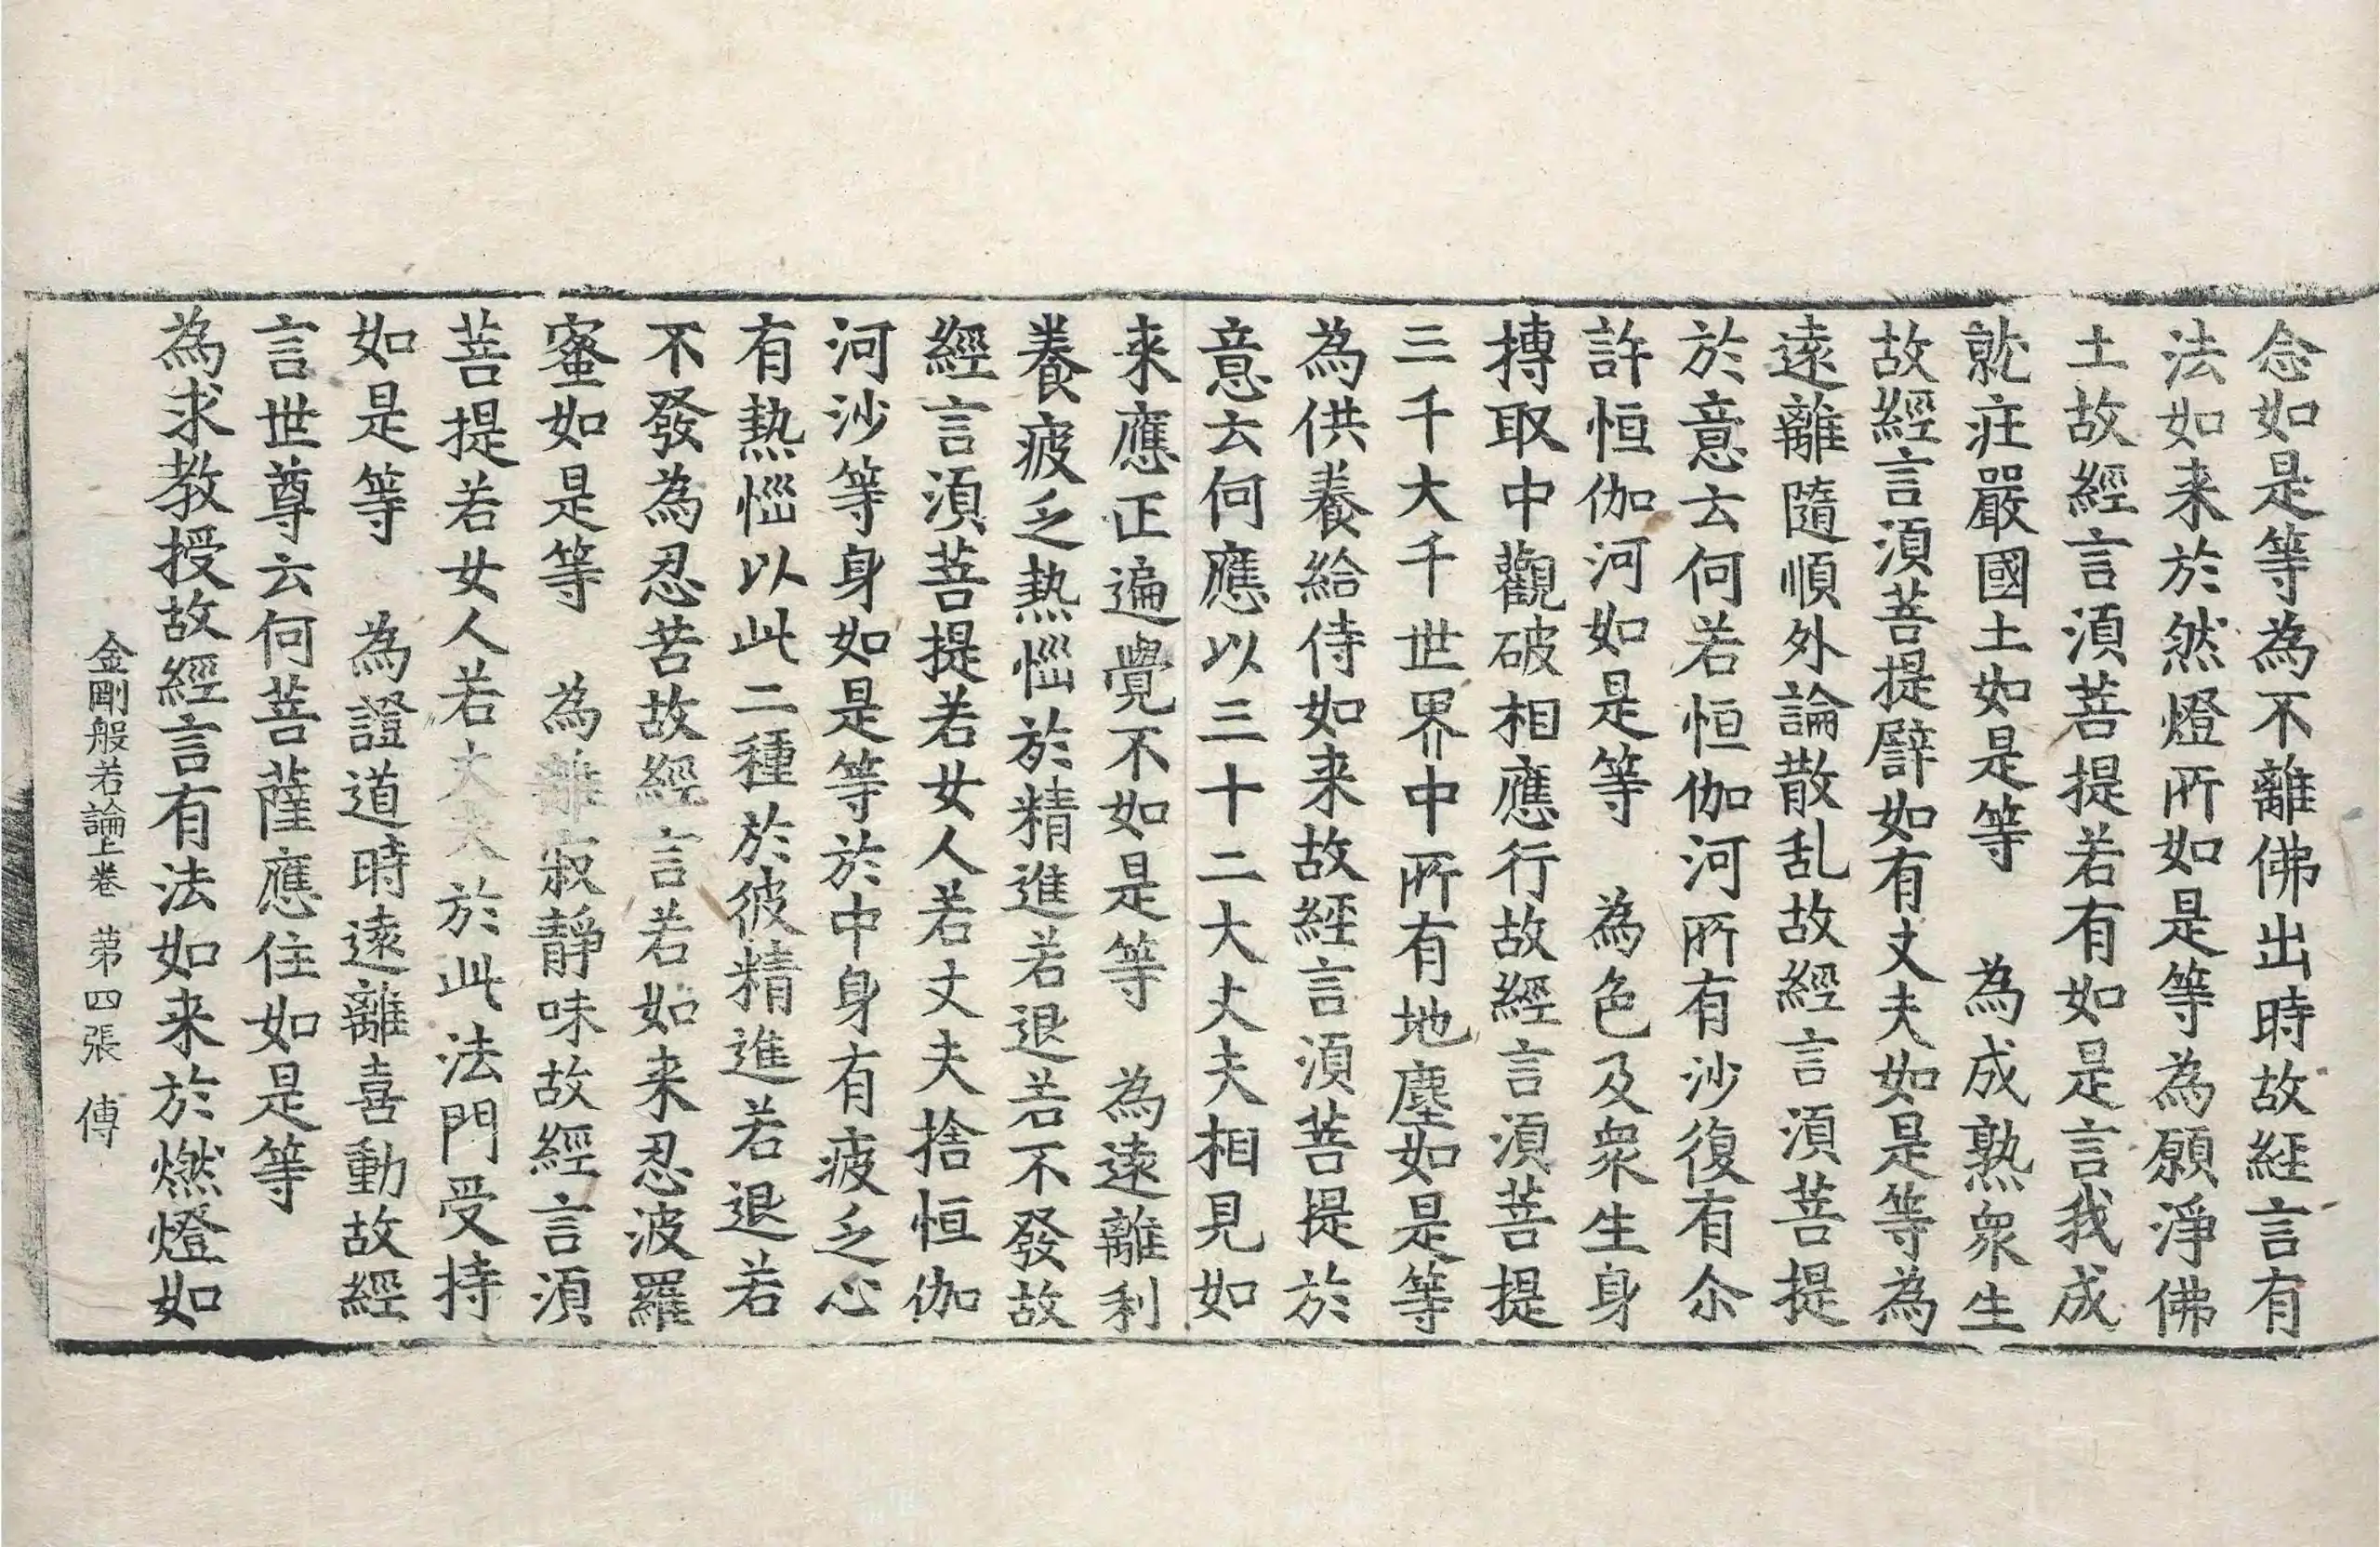 念如是等為不離佛出時故經言有
法如来於然燈所如是等為願淨佛
土故經言湏菩提若有如是言我成
就疰嚴國土如是等　為成熟衆生
故經言湏菩提譬如有丈夫如是等為
遠離隨順外論散乱故經言湏菩提
於意云何若恒伽河所有沙復有尒
許恒伽河如是等　為色及衆生身
摶取中觀破相應行故經言湏菩提
三千大千世界中所有地塵如是等
為供養給侍如来故經言湏菩提於
意云何應以三十二大丈夫相見如
来應正遍覺不如是等　為遠離利
養疲乏熱惱於精進若退若不發故
經言湏菩提若女人若丈夫捨恒伽
河沙等身如是等於中身有疲乏心
有熱惱以此二種於彼精進若退若
不發為忍苦故經言若如来忍波羅
蜜如是等　為離寂靜味故經言湏
菩提若女人若丈夫於此法門受持
如是等　為證道時遠離喜動故經
言世尊云何菩薩應住如是等
為求教授故經言有法如来於燃燈如
金剛般若論上卷　苐四張　傅